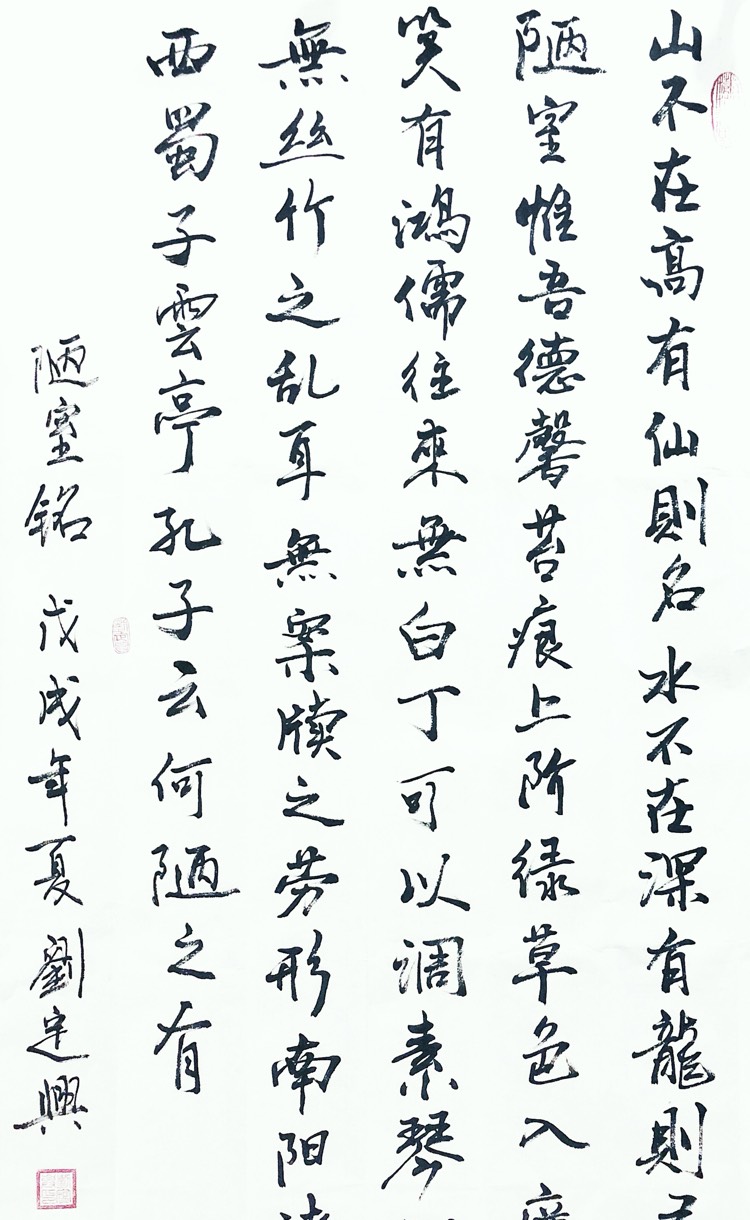 山不在高有仙則名水不在深有龍則
陋室惟吾德馨苔痕上阶绿草色入
笑有鴻儒往來無白丁可以调素琴
無丝竹之乱耳無案牍之劳形南阳
西蜀子雲亭孔子云何陋之有
陋室铭 戊戌年夏劉定興